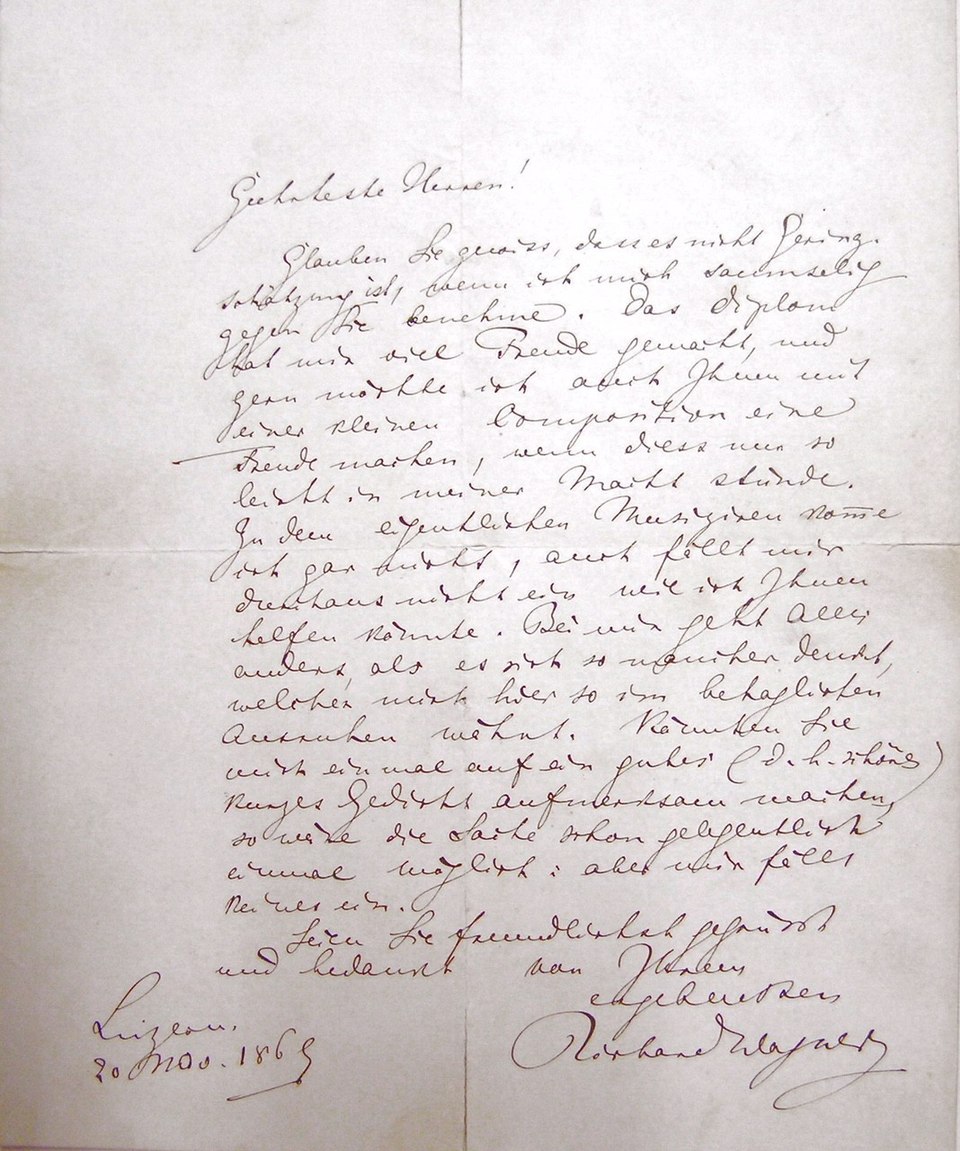 Geehrteste Herren!
Glauben Sie gewiss, dass es nicht Gering-
schätzung ist, wenn ich mich saumselig
gegen Sie benehme. Das Diplom
hat mir viel Freude gemacht, und
gern möchte ich auch Ihnen mit
einer kleinen Composition eine
Freude machen, wenn diess nur so
leicht in meiner Macht stünde.
Zu dem eigentlichen Musiziren kom̄e
ich gar nicht, auch fällt mir
durchaus nicht ein wie ich Ihnen
helfen könnte. Bei mir geht Alles
anders, als es sich so mancher denckt,
welcher mich hier so im behaglichen
Ausruhen wähnt. Könnten Sie
mich einmal auf ein gutes (d.h. schönes)
kurzes Gedicht aufmerksam machen,
so wäre die Sache schon gelegentlich
einmal möglich: aber mir fällt
keines ein.
Seien Sie freundlichst gegrüsst
und bedankt von Ihrem
ergebensten
Richard Wagner
Luzern.
20 Nov. 1869